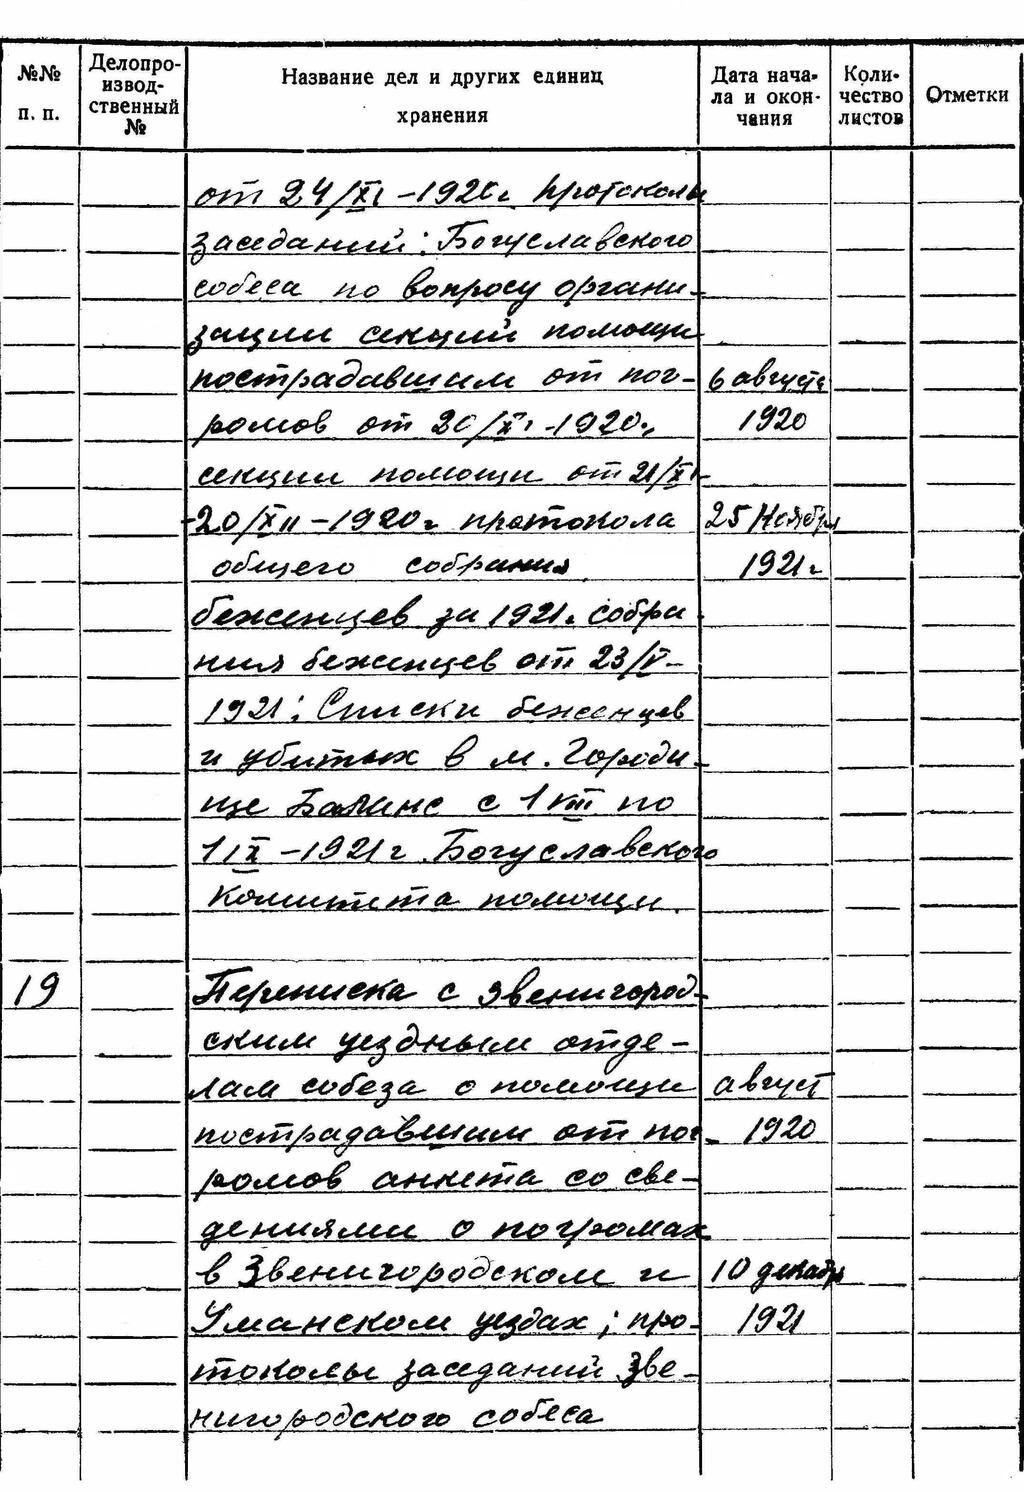 №№ п. п.
Делопро-
извод-
ственный
№
Название дел и других единиц
хранения
Дата нача-
ла и окон-
чания
Коли-
чество
листов
Отметки
от 24/XI – 1920г. протоколы
заседаний: Богуславского
собеса по вопросу органи-
зации секций помощи
пострадавшим от пог-
6 августа
ромов от 20/XI - 1920г.,
1920
секции помощи от 21/XI-
-20/XII – 1920г протокола
25 Ноября
общего собрания
1921г
беженцев за 1921г. собра-
ния беженцев от 23/V-
1921: Списки беженцев
и убитых в м. Городи-
ще Баланс с 1 VIII по
1 IX – 1921г. Богуславского
Комитета помощи.
19
Переписка с Звенигород-
ским уездным отде-
лам собеза о помощи
август
пострадавшим от пог-
1920
ромов анкета со све-
дениями о погромах
в Звенигородском и
10 декабря
Уманском уездах; про-
1921
токолы заседаний Зве-
нигородского собеса